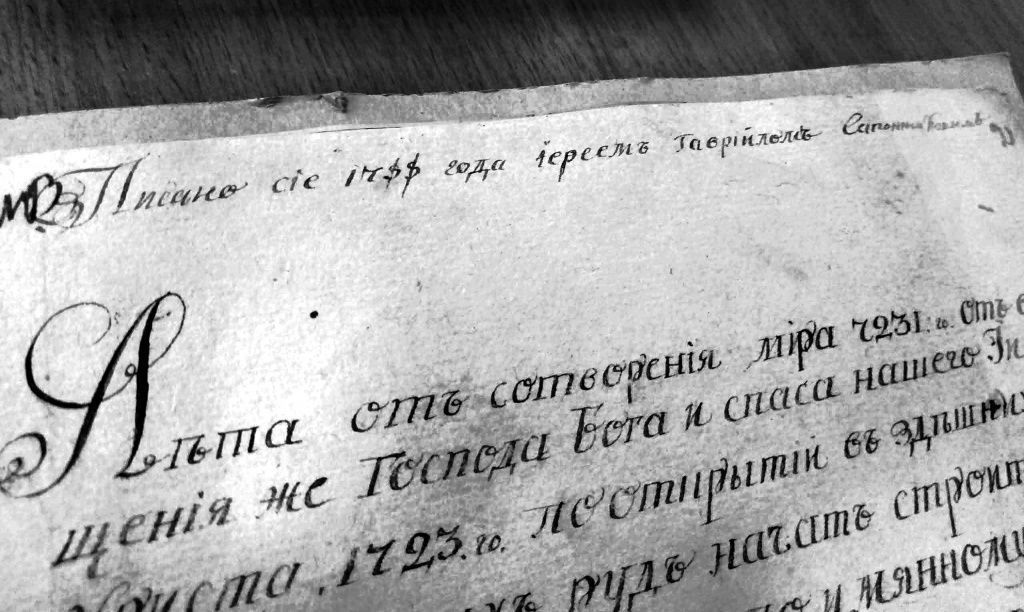 Писано сіе 17$$ года іереемъ Гавріиломъ
Лѣта отъ сотворенія міра 7231.го. отъ
щенія же Господа Бога и спаса нашего
Христа, 1723.го. по открытіи въ здѣшних
рудъ начатъ строит